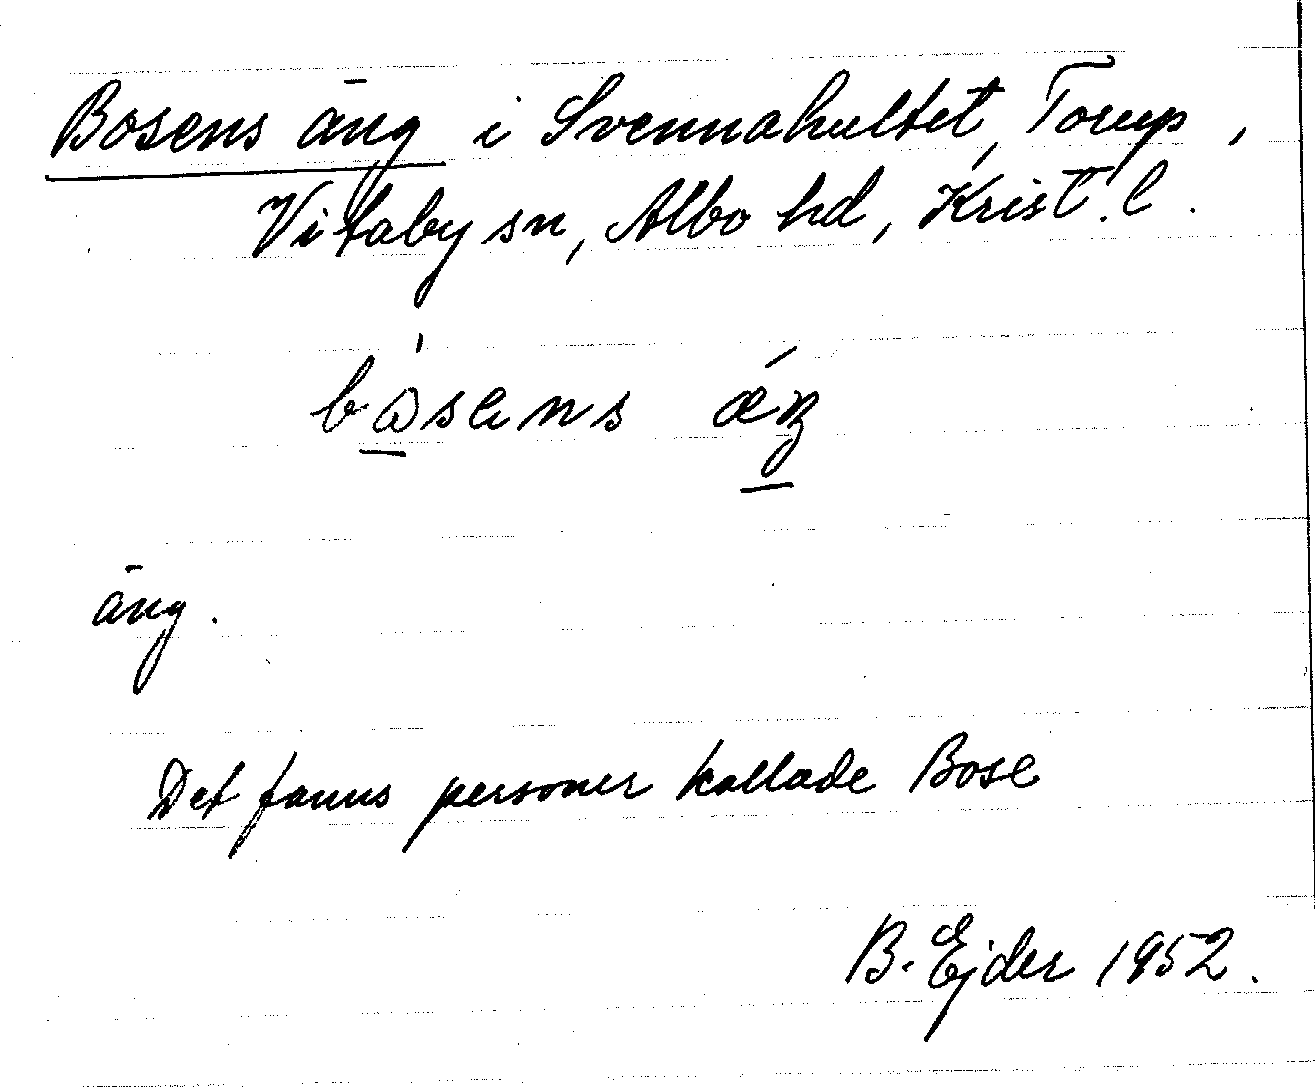 Bosens äng i Svennahultet, Torup,
Vitaby sn, Albo hd, Krist. l.
bósens ǽŋ
äng.
Det fanns personer kallade Bose
B. Ejder 1952.